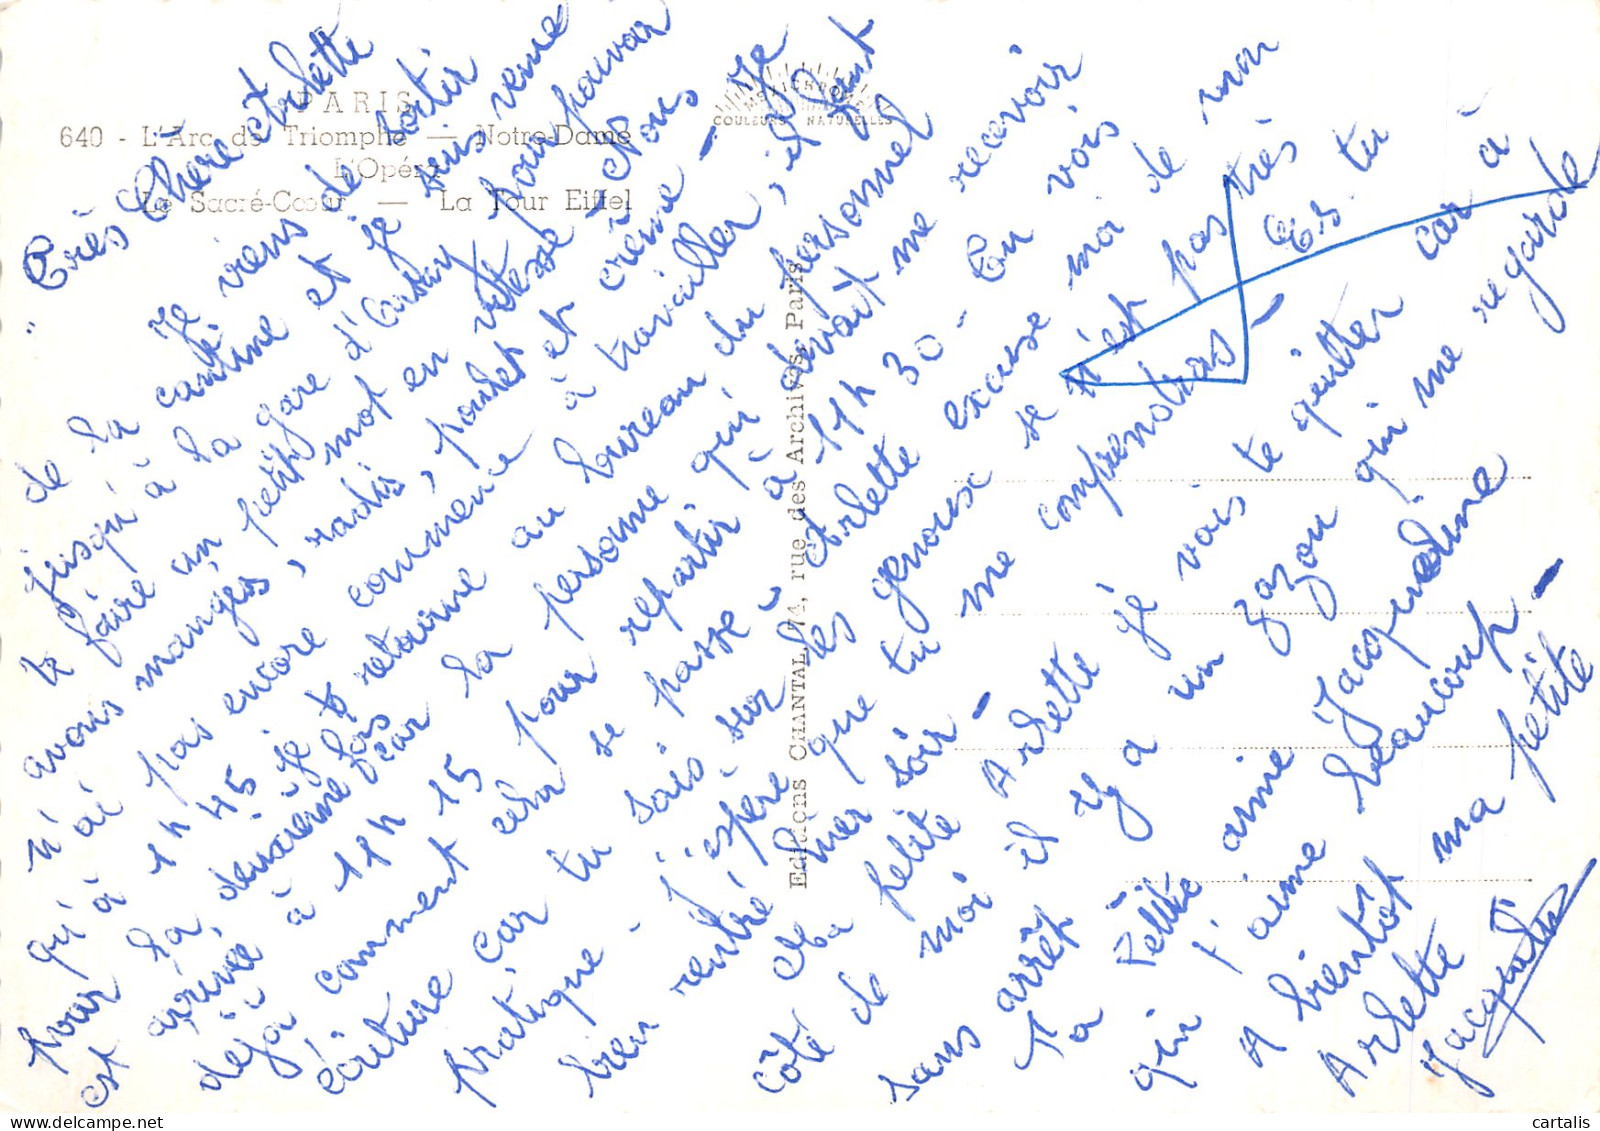 PARIS
640 - L'Arc de Triomphe — Notre-Dame
L'Opéra
Le Sacré-Cœur — La Tour Eiffel
MEXICHROME
COULEURS NATURELLES
Editions CHANTAL, 74, rue des Archives, Paris
Très Chère Arlette
Je viens de sortir
de la cantine et je suis venue
jusqu'à la gare d'Orsay pour pouvoir
te faire un petit mot en vitesse Nous
avons mangés, radis, poulet et crème - Je
n'ai pas encore commencé à travailler, il faut
qu'à 1h 45 je retourne au bureau du personnel
pour la deuxième fois car la personne qui devait me recevoir
est arrivée à 11h 15 pour repartir à 11h 30 - Tu vois
déjà comment cela se passe - Arlette excuse moi de mon
écriture car tu sais sur les genoux se n'est pas très
pratique - J'espère que tu me comprendras - Es tu
bien rentré hier soir -
Ma petite Arlette je vais te quitter car à
côté de moi il y a un zazou qui me regarde
sans arrêt
Ta Petite amie Jacqueline
qui t'aime beaucoup -
A bientôt ma petite
Arlette
Jacqueline
cartalis.com